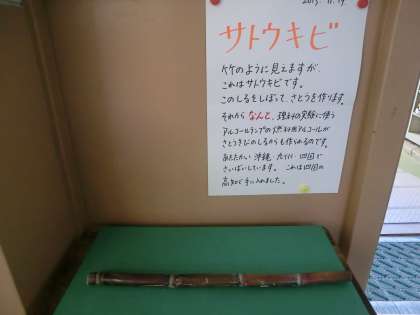 2013. 11. 19
サトウキビ
竹のように見えますが、
これはサトウキビです。
このしるをしぼって、さとうを作ります。
それから なんと、理科の実験に使う
アルコールランプの燃料用アルコールが
さとうきびのしるからも作れるのです。
あたたかい沖縄、九州、四国で
さいばいしています。 これは四国の
高知で手に入れました。